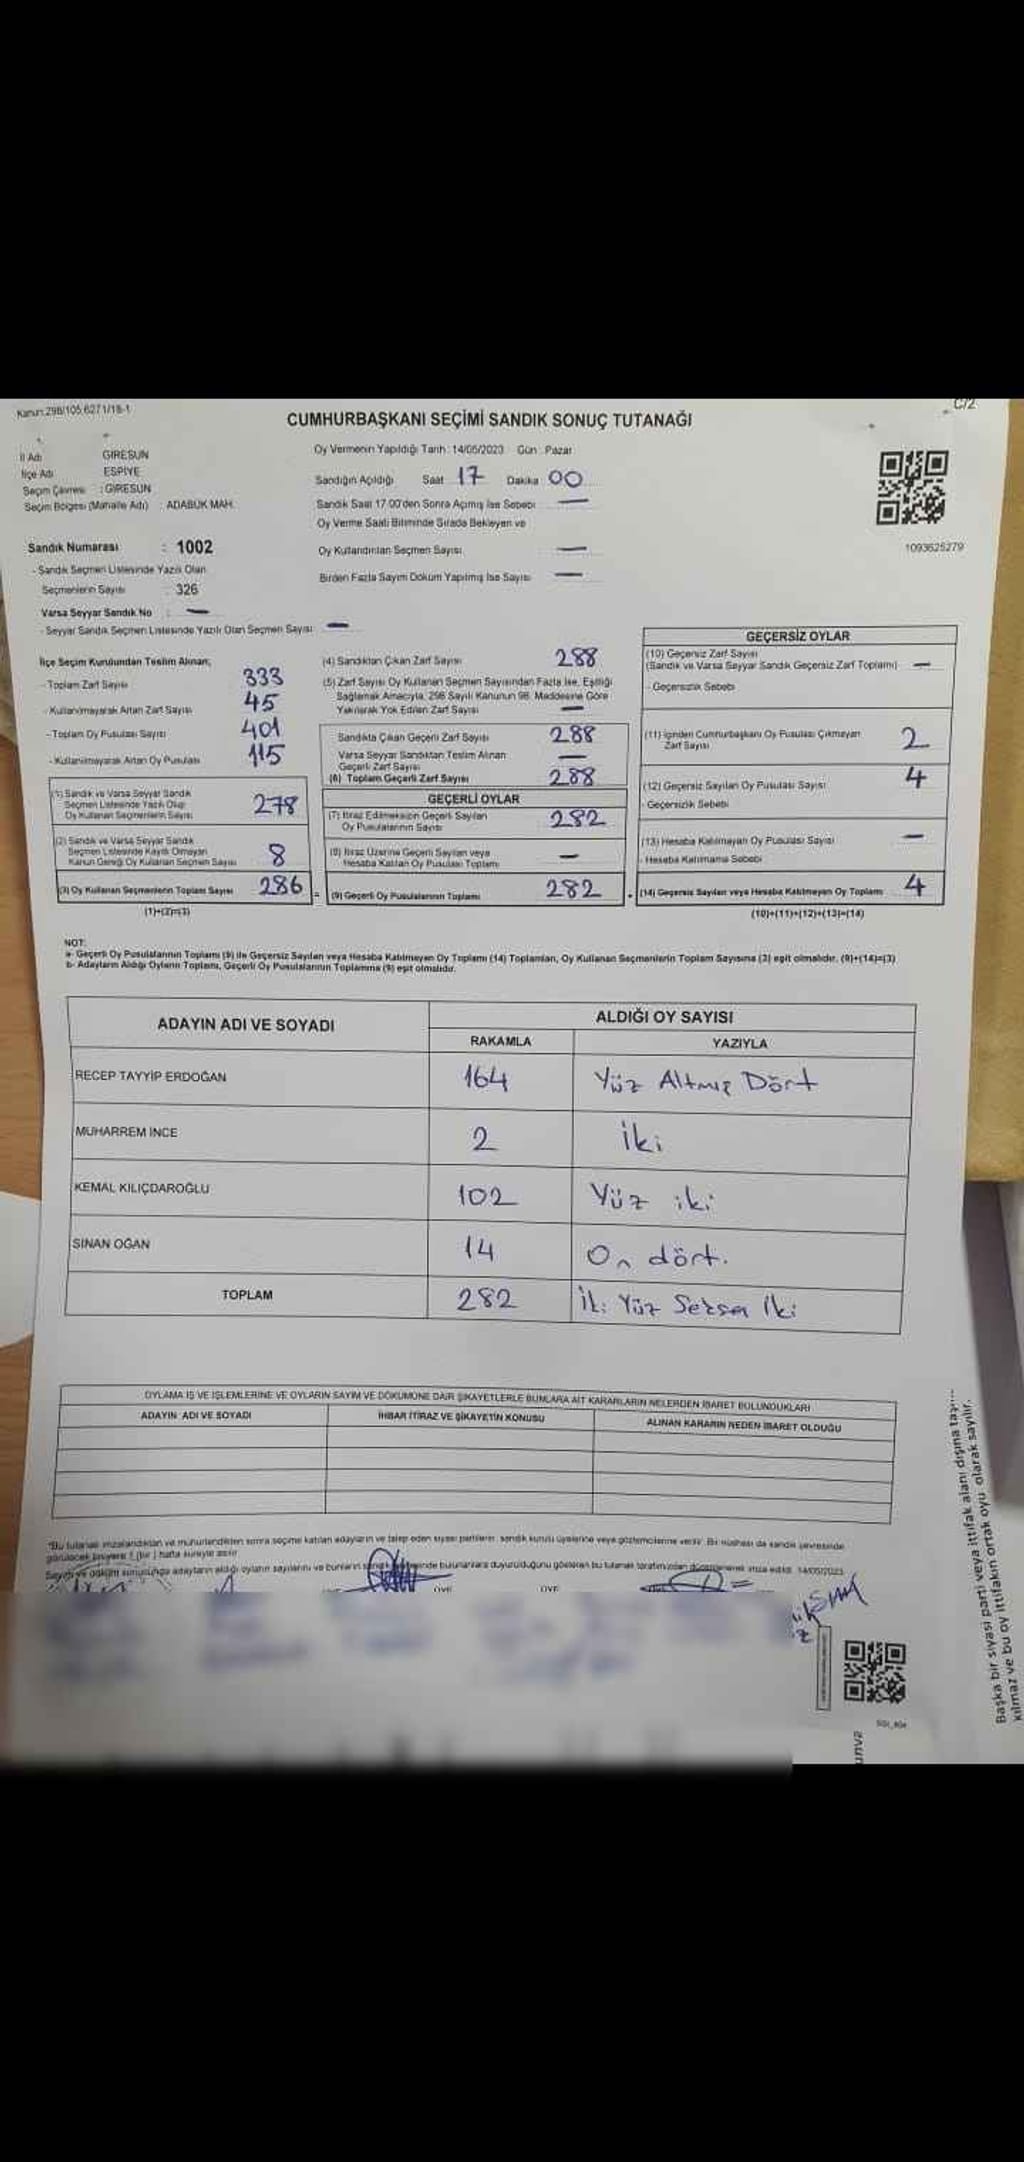 Kanun:298/105.6271/18-1
C/2
CUMHURBAŞKANI SEÇİMİ SANDIK SONUÇ TUTANAĞI
İl Adı GİRESUN
İlçe Adı ESPİYE
Seçim Çevresi : GİRESUN
Seçim Bölgesi (Mahalle Adı) : ADABÜK MAH.
Oy Vermenin Yapıldığı Tarih : 14/05/2023 Gün : Pazar
Sandığın Açıldığı Saat 17 Dakika 00
Sandık Saat 17.00'den Sonra Açılmış İse Sebebi —
Oy Verme Saati Bitiminde Sırada Bekleyen ve
Oy Kullandırılan Seçmen Sayısı —
Birden Fazla Sayım Döküm Yapılmış İse Sayısı —
1093625279
Sandık Numarası : 1002
- Sandık Seçmen Listesinde Yazılı Olan
Seçmenlerin Sayısı : 326
Varsa Seyyar Sandık No : —
- Seyyar Sandık Seçmen Listesinde Yazılı Olan Seçmen Sayısı —
İlçe Seçim Kurulundan Teslim Alınan;
- Toplam Zarf Sayısı 333
- Kullanılmayarak Artan Zarf Sayısı 45
- Toplam Oy Pusulası Sayısı 401
- Kullanılmayarak Artan Oy Pusulası 115
(1) Sandık ve Varsa Seyyar Sandık
Seçmen Listesinde Yazılı Olup
Oy Kullanan Seçmenlerin Sayısı 278
(2) Sandık ve Varsa Seyyar Sandık
Seçmen Listesinde Kayıtlı Olmayan
Kanun Gereği Oy Kullanan Seçmen Sayısı 8
(3) Oy Kullanan Seçmenlerin Toplam Sayısı 286
(1)+(2)=(3)
(4) Sandıktan Çıkan Zarf Sayısı 288
(5) Zarf Sayısı Oy Kullanan Seçmen Sayısından Fazla İse, Eşitliği
Sağlamak Amacıyla, 298 Sayılı Kanunun 98. Maddesine Göre
Yakılarak Yok Edilen Zarf Sayısı —
Sandıkta Çıkan Geçerli Zarf Sayısı 288
Varsa Seyyar Sandıktan Teslim Alınan
Geçerli Zarf Sayısı —
(6) Toplam Geçerli Zarf Sayısı 288
GEÇERLİ OYLAR
(7) İtiraz Edilmeksizin Geçerli Sayılan
Oy Pusulalarının Sayısı 282
(8) İtiraz Üzerine Geçerli Sayılan veya
Hesaba Katılan Oy Pusulası Toplamı —
(9) Geçerli Oy Pusulalarının Toplamı 282
GEÇERSİZ OYLAR
(10) Geçersiz Zarf Sayısı
(Sandık ve Varsa Seyyar Sandık Geçersiz Zarf Toplamı) —
- Geçersizlik Sebebi
(11) İçinden Cumhurbaşkanı Oy Pusulası Çıkmayan
Zarf Sayısı 2
(12) Geçersiz Sayılan Oy Pusulası Sayısı 4
- Geçersizlik Sebebi
(13) Hesaba Katılmayan Oy Pusulası Sayısı —
- Hesaba Katılmama Sebebi
(14) Geçersiz Sayılan veya Hesaba Katılmayan Oy Toplamı 4
(10)+(11)+(12)+(13)=(14)
NOT:
a- Geçerli Oy Pusulalarının Toplamı (9) ile Geçersiz Sayılan veya Hesaba Katılmayan Oy Toplamı (14) Toplamları, Oy Kullanan Seçmenlerin Toplam Sayısına (3) eşit olmalıdır. (9)+(14)=(3)
b- Adayların Aldığı Oyların Toplamı, Geçerli Oy Pusulalarının Toplamına (9) eşit olmalıdır.
ADAYIN ADI VE SOYADI ALDIĞI OY SAYISI
RAKAMLA YAZIYLA
RECEP TAYYİP ERDOĞAN 164 Yüz Altmış Dört
MUHARREM İNCE 2 İki
KEMAL KILIÇDAROĞLU 102 Yüz iki
SİNAN OĞAN 14 On dört.
TOPLAM 282 İki Yüz Seksen İki
OYLAMA İŞ VE İŞLEMLERİNE VE OYLARIN SAYIM VE DÖKÜMÜNE DAİR ŞİKAYETLERLE BUNLARA AİT KARARLARIN NELERDEN İBARET BULUNDUKLARI
ADAYIN ADI VE SOYADI İHBAR İTİRAZ VE ŞİKAYETİN KONUSU ALINAN KARARIN NEDEN İBARET OLDUĞU
"Bu tutanak imzalandıktan ve mühürlendikten sonra seçime katılan adayların ve talep eden siyasi partilerin, sandık kurulu üyelerine veya gözlemcilerine verilir. Bir nüshası da sandık çevresinde
görülecek bir yere 1 (bir) hafta süreyle asılır
Sayım ve döküm sonucunda adayların aldığı oyların sayılarını ve bunların bulunanlara duyurulduğunu gösteren bu tutanak tarafımızdan düzenlenerek imza edildi. 14/05/2023
ÜYE ÜYE
Başka bir siyasi parti veya ittifak alanı dışına
kılmaz ve bu oy ittifakın ortak oyu olarak sayılır.